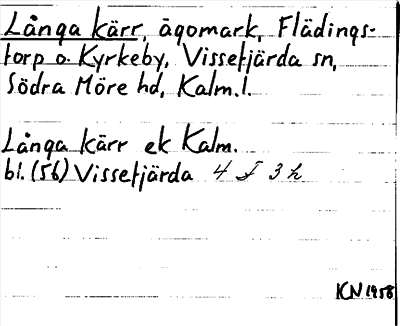 Långa kärr, ägomark, Flädings-
torp o. Kyrkeby, Vissefjärda sn,
Södra Möre hd, Kalm. l.
Långa kärr ek Kalm.
bl. (56) Vissefjärda 4 f 3 h
KN 1958